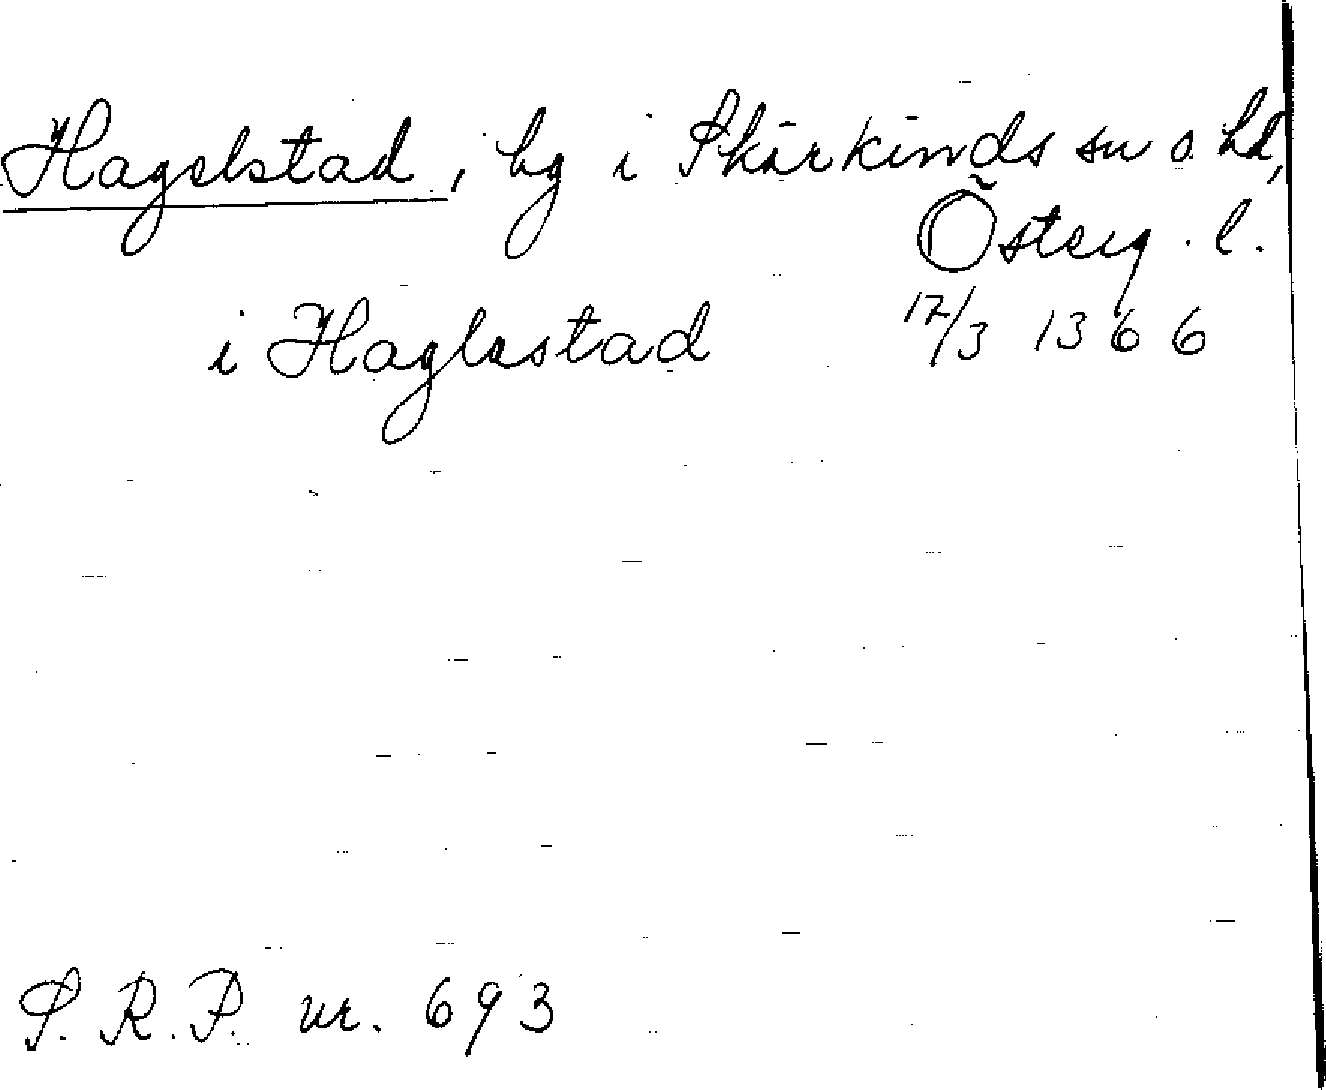 Hagelstad, by i Skärkinds sn o. hd,
Österg. l.
i Haglastad 17/3 1366
S. R. P. nr. 693